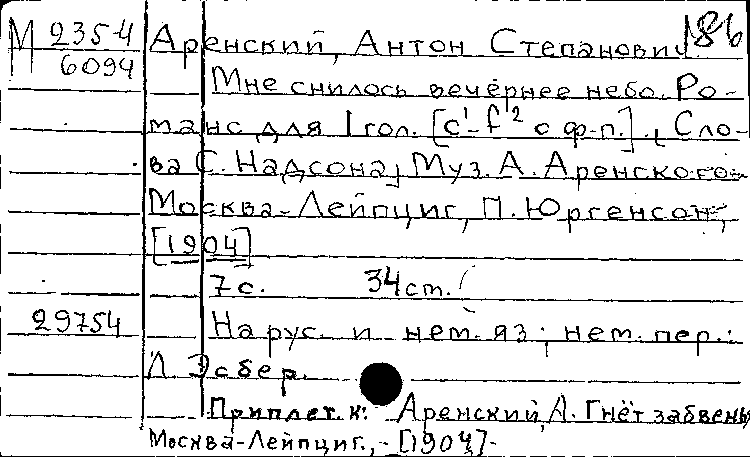 М 2354 Аренский, Антон Степанович 186
6094 Мне снилось вечернее небо. Ро-
манс для 1 гол. [c¹-f² с ф-п.]., Сло-
ва С. Надсона, Муз. А. Аренского
Москва-Лейпциг, П. Юргенсон,
[1904]
7 с. 34 ст.
29754 На рус. и нем. яз.; нем. пер.:
Л. Эсбер.
Приплет. к: Аренский, А. Гнёт забвенья
Москва-Лейпциг., - [1904]-